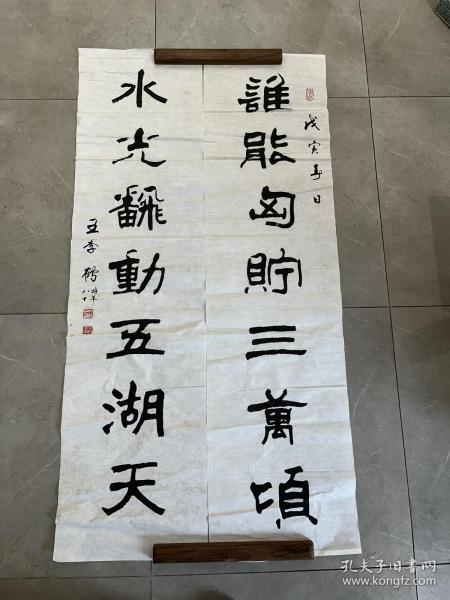 戊寅春日
誰能匈貯三萬頃
水光飜動五湖天
王季鶴
時年八十
孔夫子旧书网
www.kongfz.com